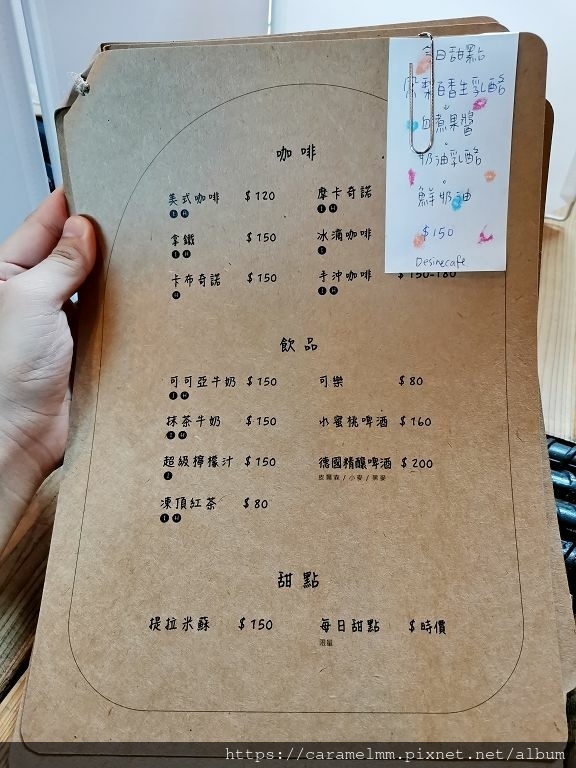 今日甜點
鳳梨百香生乳酪
自煮果醬
奶油乳酪
鮮奶油
$150
Desire cafe
咖啡
美式咖啡 $120 摩卡奇諾
I H I H
拿鐵 $150 冰滴咖啡
I H I
卡布奇諾 $150 手沖咖啡 $150-180
H I H
飲品
可可亞牛奶 $150 可樂 $80
I H
抹茶牛奶 $150 水蜜桃啤酒 $160
I H
超級檸檬汁 $150 德國精釀啤酒 $200
I 皮爾森/小麥/黑麥
凍頂紅茶 $80
I H
甜點
提拉米蘇 $150 每日甜點 $時價
限量
https://caramelmm.pixnet.net/album